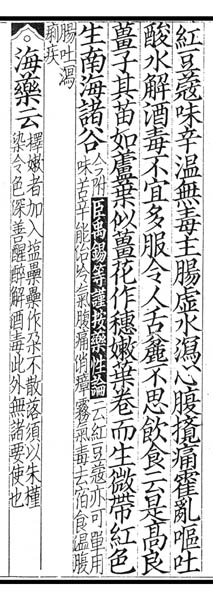 紅豆蔲味辛溫無毒主腸虛水瀉心腹攪痛霍亂嘔吐
酸水解酒毒不宜多服令人舌麄不思飲食云是高良
薑子其苗如蘆葉似薑花作穗嫩葉卷而生微帶紅色
生南海諸谷今附臣禹錫等謹按藥性論云紅豆蔲亦可單用
味苦辛能治冷氣腹痛消瘴霧氣毒去宿食溫腹
腸吐瀉
痢疾
海藥云擇嫩者加入塩纍纍作朶不散落須以朱槿
染令色深善醒醉解酒毒此外無諸要使也